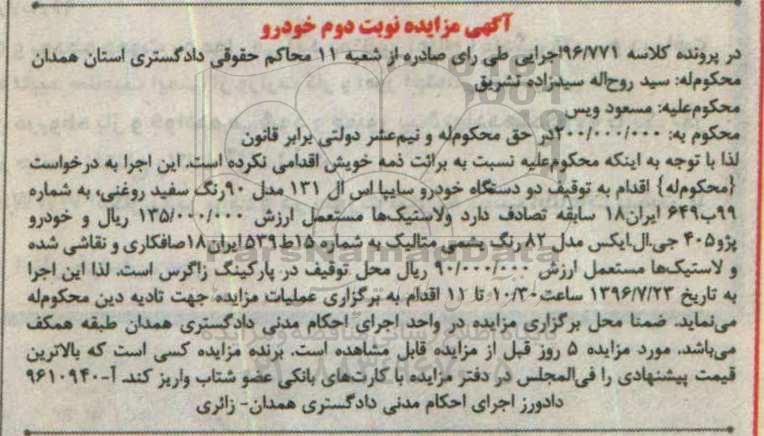 آگهی مزایده نوبت دوم خودرو
در پرونده کلاسه ۹۶/۷۷۱اجرایی طی رای صادره از شعبه ۱۱ محاکم حقوقی دادگستری استان همدان
محکوم‌له: سید روح‌اله سیدزاده تشریق
محکوم‌علیه: مسعود ویس
محکوم به: ۲۰۰/۰۰۰/۰۰۰در حق محکوم‌له و نیم‌عشر دولتی برابر قانون
لذا با توجه به اینکه محکوم‌علیه نسبت به برائت ذمه خویش اقدامی نکرده است. این اجرا به درخواست
{محکوم‌له} اقدام به توقیف دو دستگاه خودرو سایپا اس ال ۱۳۱ مدل ۹۰رنگ سفید روغنی، به شماره
۹۹ب۶۴۹ ایران۱۸ سابقه تصادف دارد ولاستیک‌ها مستعمل ارزش ۱۳۵/۰۰۰/۰۰۰ ریال و خودرو
پژو۴۰۵ جی.ال.ایکس مدل ۸۲ رنگ یشمی متالیک به شماره ۱۵ط۵۳۹ ایران۱۸صافکاری و نقاشی شده
و لاستیک‌ها مستعمل ارزش ۹۰/۰۰۰/۰۰۰ ریال محل توقیف در پارکینگ زاگرس است. لذا این اجرا
به تاریخ ۱۳۹۶/۷/۲۳ ساعت۱۰/۳۰ تا ۱۱ اقدام به برگزاری عملیات مزایده جهت تادیه دین محکوم‌له
می‌نماید. ضمنا محل برگزاری مزایده در واحد اجرای احکام مدنی دادگستری همدان طبقه همکف
می‌باشد. مورد مزایده ۵ روز قبل از مزایده قابل مشاهده است. برنده مزایده کسی است که بالاترین
قیمت پیشنهادی را فی‌المجلس در دفتر مزایده با کارت‌های بانکی عضو شتاب واریز کند. آ-۹۶۱۰۹۴۰
دادورز اجرای احکام مدنی دادگستری همدان- زائری